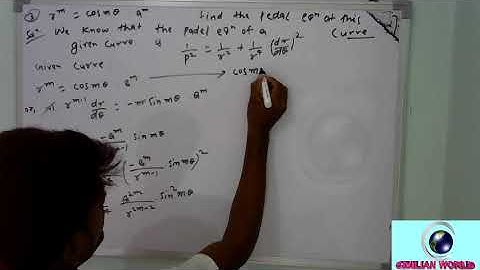 ③ r^m = cos mθ a^m find the pedal eqⁿ of this curve
Solⁿ We know that the padel eqⁿ of a
given curve is 1/p² = 1/r² + 1/r⁴ (dr/dθ)²
Given curve
r^m = cos mθ a^m → cos m
or, m r^(m-1) dr/dθ = -m sin mθ a^m
-a^m sin mθ
(-a^m/r^(m-1) sin mθ)²
a^2m/r^(2m-2) sin² mθ
CIVILIAN WORLD